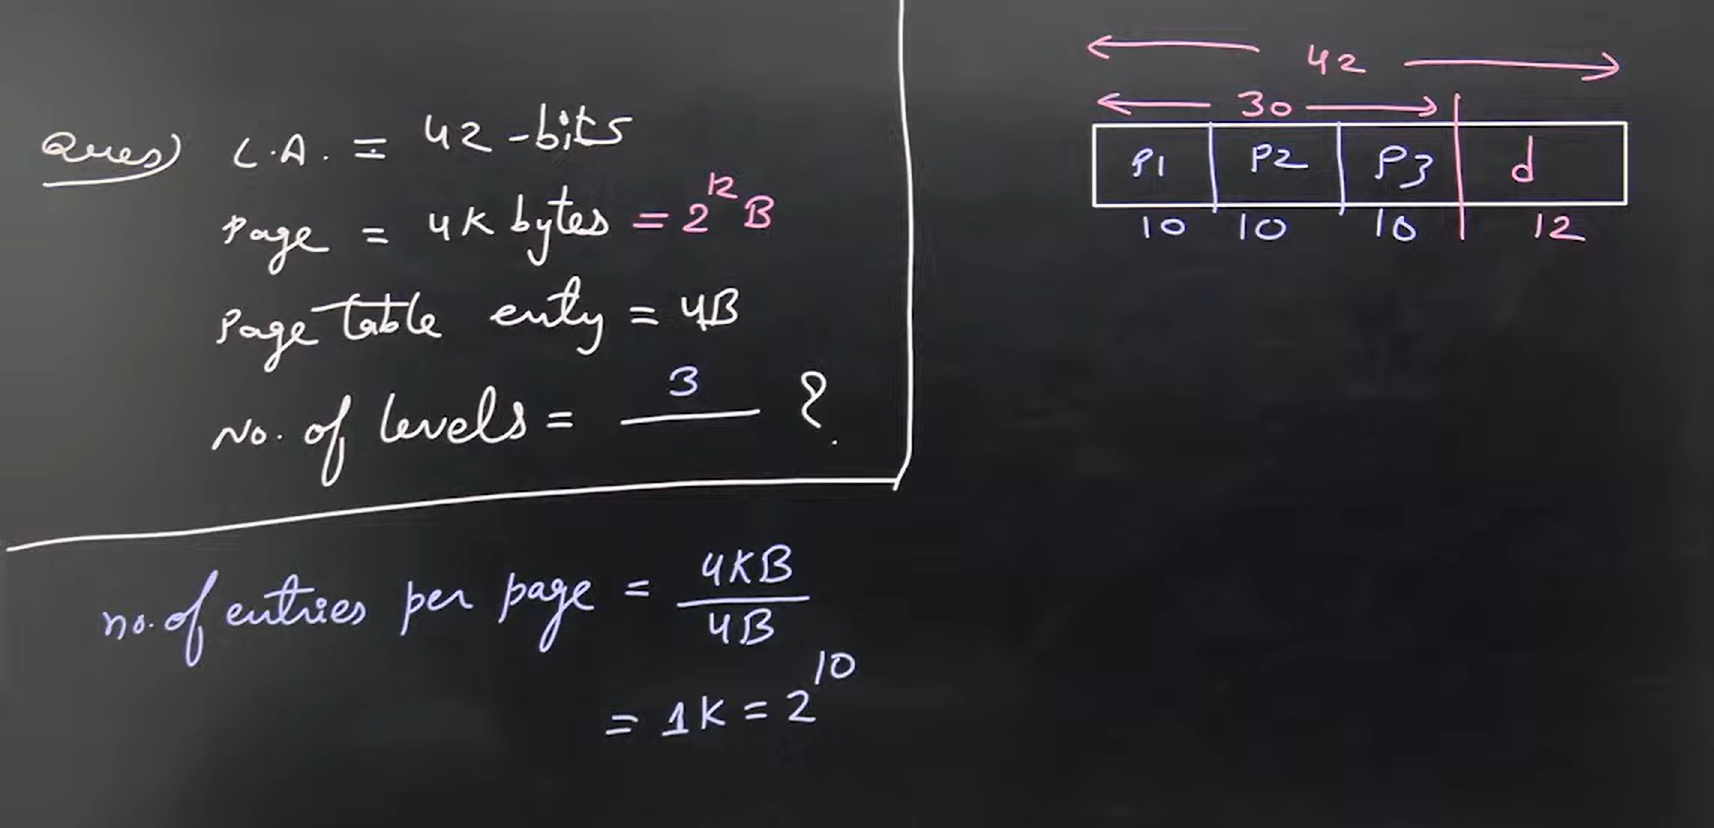 Ques) L.A. = 42-bits
Page = 4K bytes = 2^12 B
Page Table enty = 4B
No. of levels = 3 ?
no. of entries per page = 4KB / 4B
= 1K = 2^10
42
30
P1 P2 P3 d
10 10 10 12